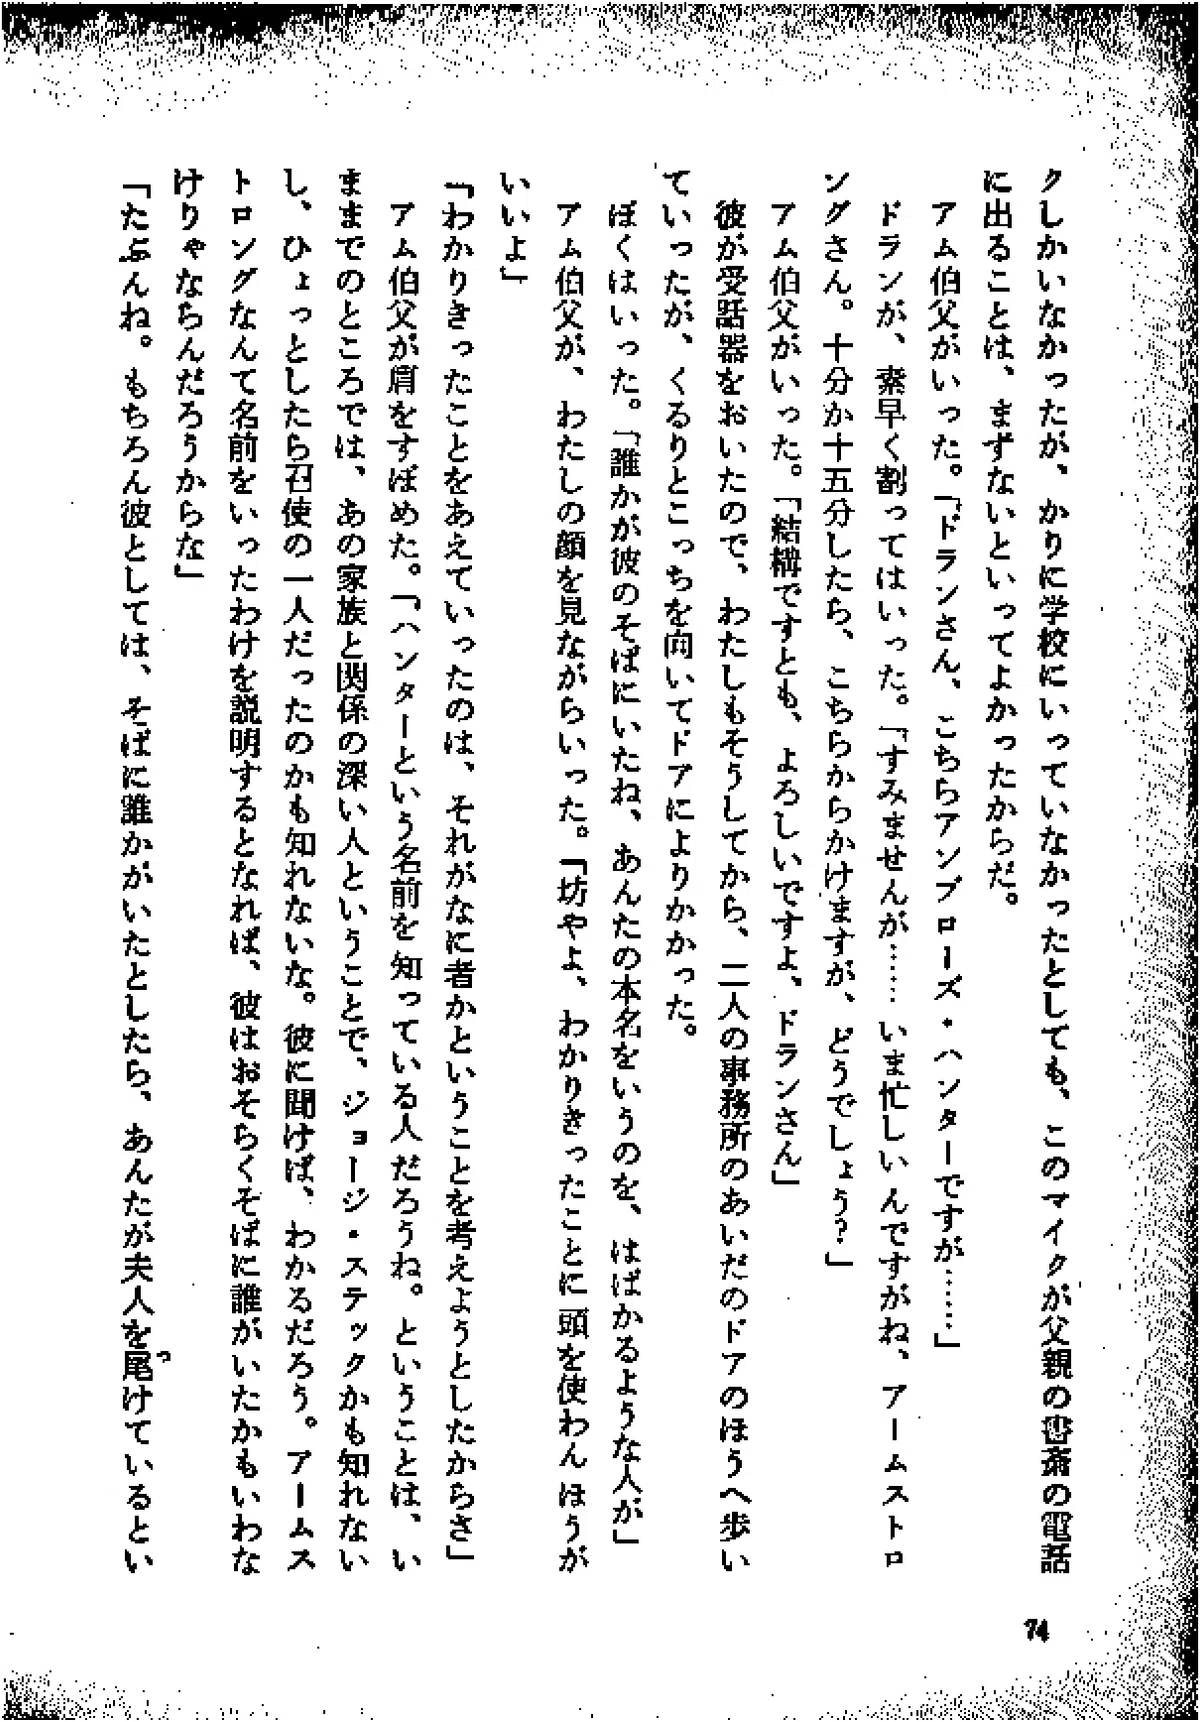 クしかいなかったが、かりに学校にいっていなかったとしても、このマイクが父親の書斎の電話
に出ることは、まずないといってよかったからだ。
アム伯父がいった。「ドランさん、こちらアンブローズ・ハンターですが……」
ドランが、素早く割ってはいった。「すみませんが……いま忙しいんですがね、アームストロ
ングさん。十分か十五分したら、こちらからかけますが、どうでしょう？」
アム伯父がいった。「結構ですとも、よろしいですよ、ドランさん」
彼が受話器をおいたので、わたしもそうしてから、二人の事務所のあいだのドアのほうへ歩い
ていったが、くるりとこっちを向いてドアによりかかった。
ぼくはいった。「誰かが彼のそばにいたね、あんたの本名をいうのを、はばかるような人が」
アム伯父が、わたしの顔を見ながらいった。「坊やよ、わかりきったことに頭を使わんほうが
いいよ」
「わかりきったことをあえていったのは、それがなに者かということを考えようとしたからさ」
アム伯父が肩をすぼめた。「ハンターという名前を知っている人だろうね。ということは、い
ままでのところでは、あの家族と関係の深い人ということで、ジョージ・ステックかも知れない
し、ひょっとしたら召使の一人だったのかも知れないな。彼に聞けば、わかるだろう。アームス
トロングなんて名前をいったわけを説明するとなれば、彼はおそらくそばに誰がいたかもいわな
けりゃならんだろうからな」
「たぶんね。もちろん彼としては、そばに誰かがいたとしたら、あんたが夫人を尾けているとい
っ
74